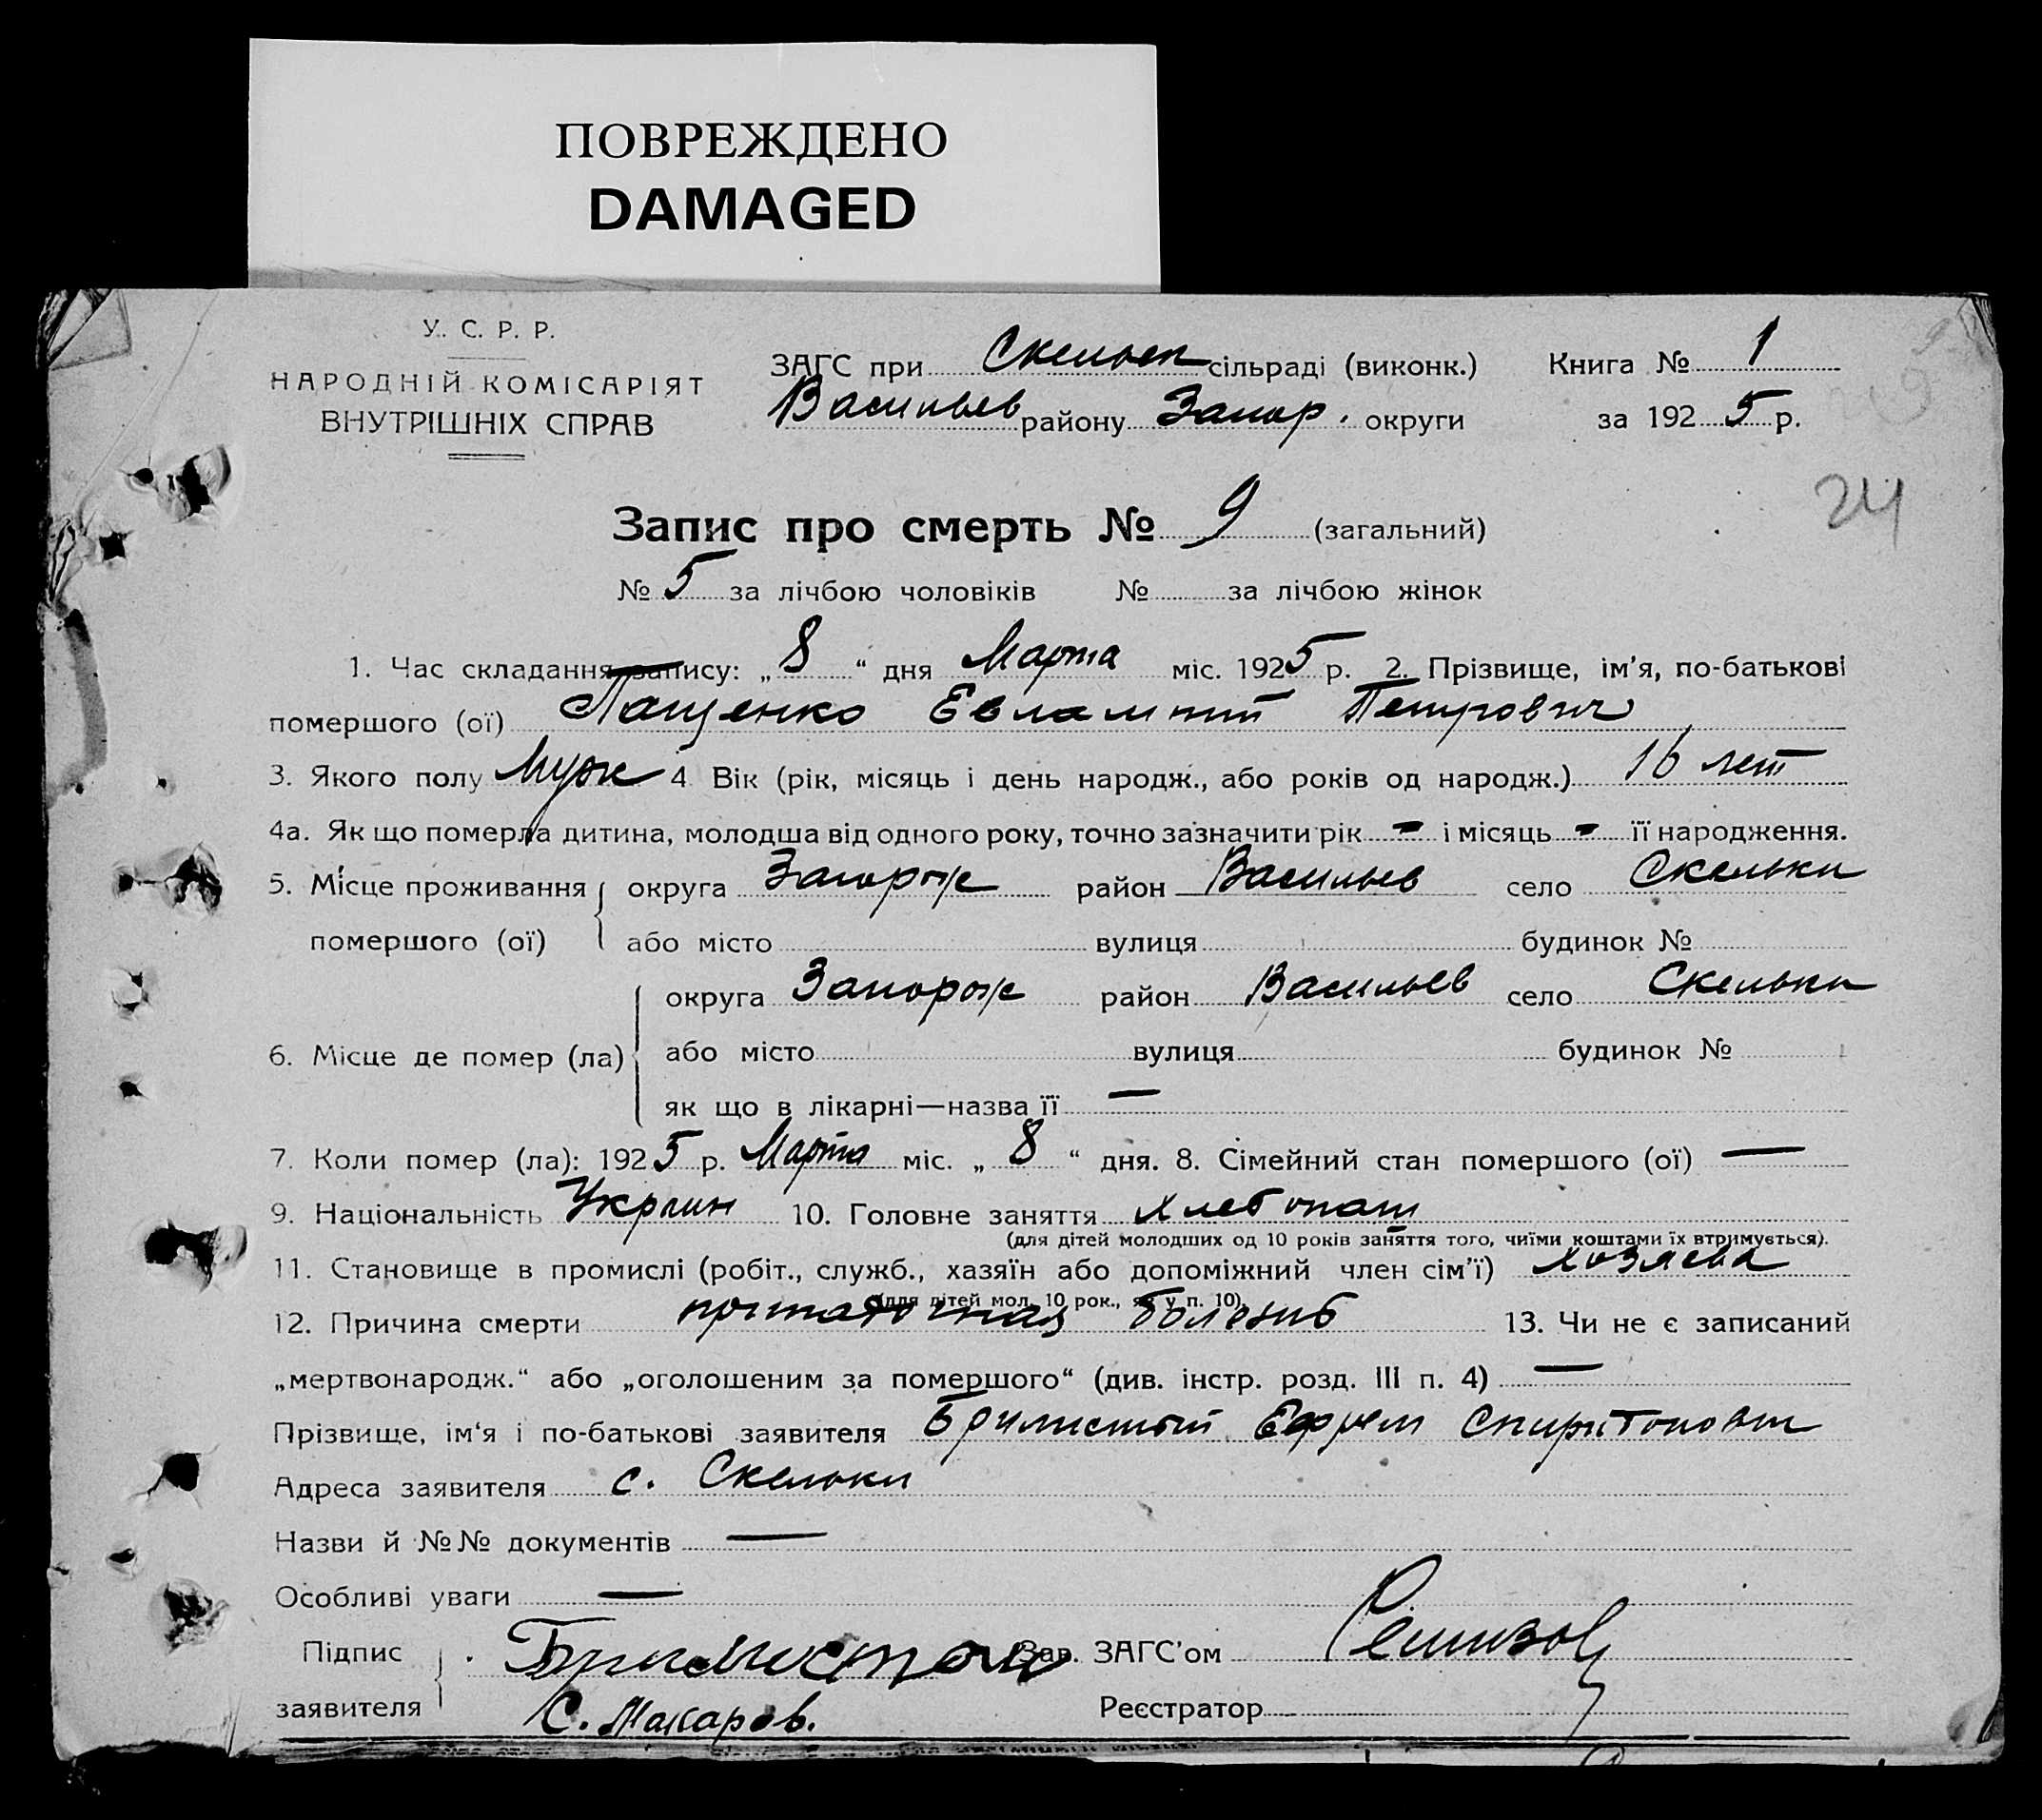 ПОВРЕЖДЕНО
DAMAGED
У. С. Р. Р.
НАРОДНІЙ КОМІСАРІЯТ
ВНУТРІШНІХ СПРАВ
ЗАГС при Скельск сільраді (виконк.) Книга № 1
Васильев району Запор. округи за 1925 р.
24
Запис про смерть № 9 (загальний)
№ 5 за лічбою чоловіків № за лічбою жінок
1. Час складання запису: „8“ дня Марта міс. 1925 р. 2. Прізвище, ім’я, по-батькові
помершого (ої) Пащенко Евлампий Петрович
3. Якого полу Муж 4 Вік (рік, місяць і день народж., або років од народж.) 16 лет
4а. Як що померла дитина, молодша від одного року, точно зазначити рік - і місяць - її народження.
5. Місце проживання помершого (ої) округа Запорож район Васильев село Скельки
або місто вулиця будинок №
6. Місце де помер (ла) округа Запорож район Васильев село Скельки
або місто вулиця будинок №
як що в лікарні—назва її —
7. Коли помер (ла): 1925 р. Марта міс. „8“ дня. 8. Сімейний стан помершого (ої) —
9. Національність Украин 10. Головне заняття хлебопаш
(для дітей молодших од 10 років заняття того, чиїми коштами їх втримується).
11. Становище в промислі (робіт., служб., хазяїн або допоміжний член сім’ї) хозяева
(для дітей мол. 10 рок., як у п. 10)
12. Причина смерти болезнь 13. Чи не є записаний
„мертвонародж.“ або „оголошеним за помершого“ (див. інстр. розд. III п. 4) —
Прізвище, ім‘я і по-батькові заявителя Ефрем Спиритонович
Адреса заявителя с. Скельки
Назви й №№ документів —
Особливі уваги —
Підпис заявителя Зав. ЗАГС’ом
С. Макаров. Реєстратор